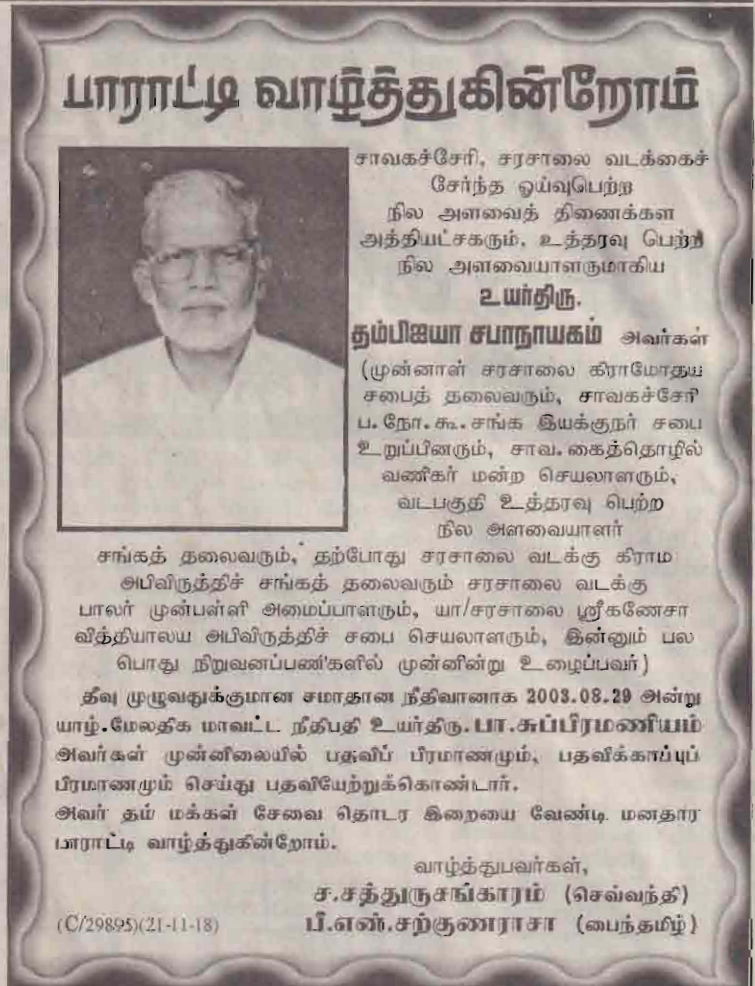 பாராட்டி வாழ்த்துகின்றோம்
சாவகச்சேரி, சரசாலை வடக்கைச்
சேர்ந்த ஓய்வுபெற்ற
நில அளவைத் திணைக்கள
அத்தியட்சகரும், உத்தரவு பெற்ற
நில அளவையாளருமாகிய
உயர்திரு.
தம்பிஐயா சபாநாயகம் அவர்கள்
(முன்னாள் சரசாலை கிராமோதய
சபைத் தலைவரும், சாவகச்சேரி
ப.நோ.கூ.சங்க இயக்குநர் சபை
உறுப்பினரும், சாவ.கைத்தொழில்
வணிகர் மன்ற செயலாளரும்,
வடபகுதி உத்தரவு பெற்ற
நில அளவையாளர்
சங்கத் தலைவரும், தற்போது சரசாலை வடக்கு கிராம
அபிவிருத்திச் சங்கத் தலைவரும் சரசாலை வடக்கு
பாலர் முன்பள்ளி அமைப்பாளரும், யா/சரசாலை ஸ்ரீகணேசா
வித்தியாலய அபிவிருத்திச் சபை செயலாளரும், இன்னும் பல
பொது நிறுவனப்பணிகளில் முன்னின்று உழைப்பவர்)
தீவு முழுவதுக்குமான சமாதான நீதிவானாக 2003.08.29 அன்று
யாழ்.மேலதிக மாவட்ட நீதிபதி உயர்திரு.பா.சுப்பிரமணியம்
அவர்கள் முன்னிலையில் பதவிப் பிரமாணமும், பதவிக்காப்புப்
பிரமாணமும் செய்து பதவியேற்றுக்கொண்டார்.
அவர் தம் மக்கள் சேவை தொடர இறையை வேண்டி மனதார
பாராட்டி வாழ்த்துகின்றோம்.
வாழ்த்துபவர்கள்,
ச.சத்துருசங்காரம் (செவ்வந்தி)
(C/29895)(21-11-18) பீ.எண்.சற்குணராசா (பைந்தமிழ்)